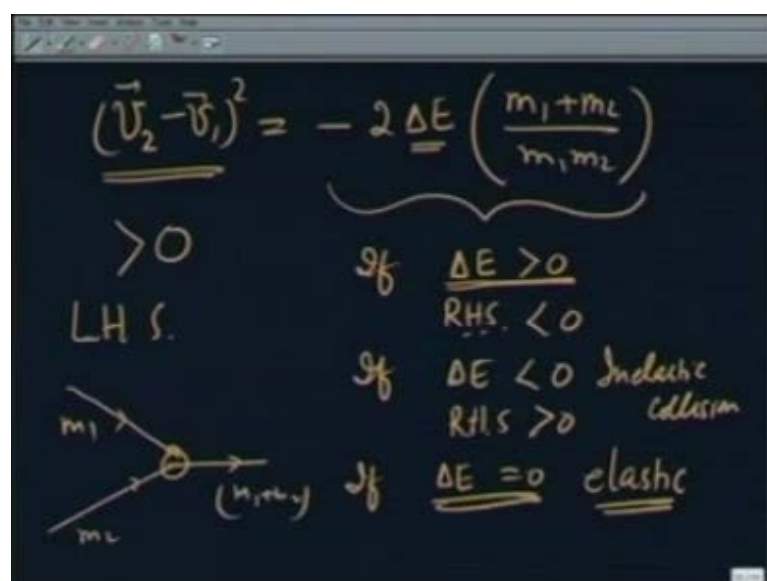 (v⃗₂ - v⃗₁)² = - 2 ΔE ( (m₁+m₂) / (m₁m₂) )
>0
LHS.
If ΔE >0
RHS. <0
If ΔE <0 Inelastic Collision
RHS >0
If ΔE =0 elastic
m₁
(m₁+m₂)
m₂